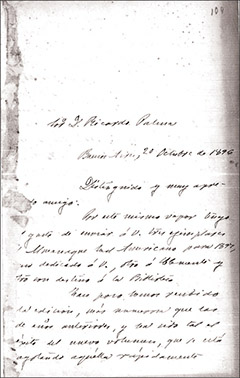 104
Sor D. Ricardo Palma
Buenos Aires, 20 Octubre de 1896
Distinguido y muy
amigo:
Por este mismo vapor tengo
gusto de enviar á V. tres ejemplares
Almanaque Sud Americano para 1897,
dedicado á V., otro á Clemente y
con destino á la Biblioteca
Hace poco hemos recibido
la edición, más numerosa que las
de años anteriores, y ha sido tal el
éxito del nuevo volumen, que se está
agotando aquella rápidamente